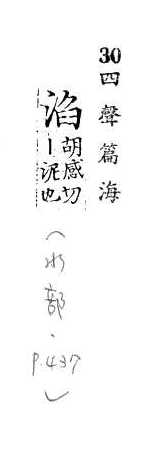 30四聲篇海
淊胡感切
｜泥也
（水部．
p.437）